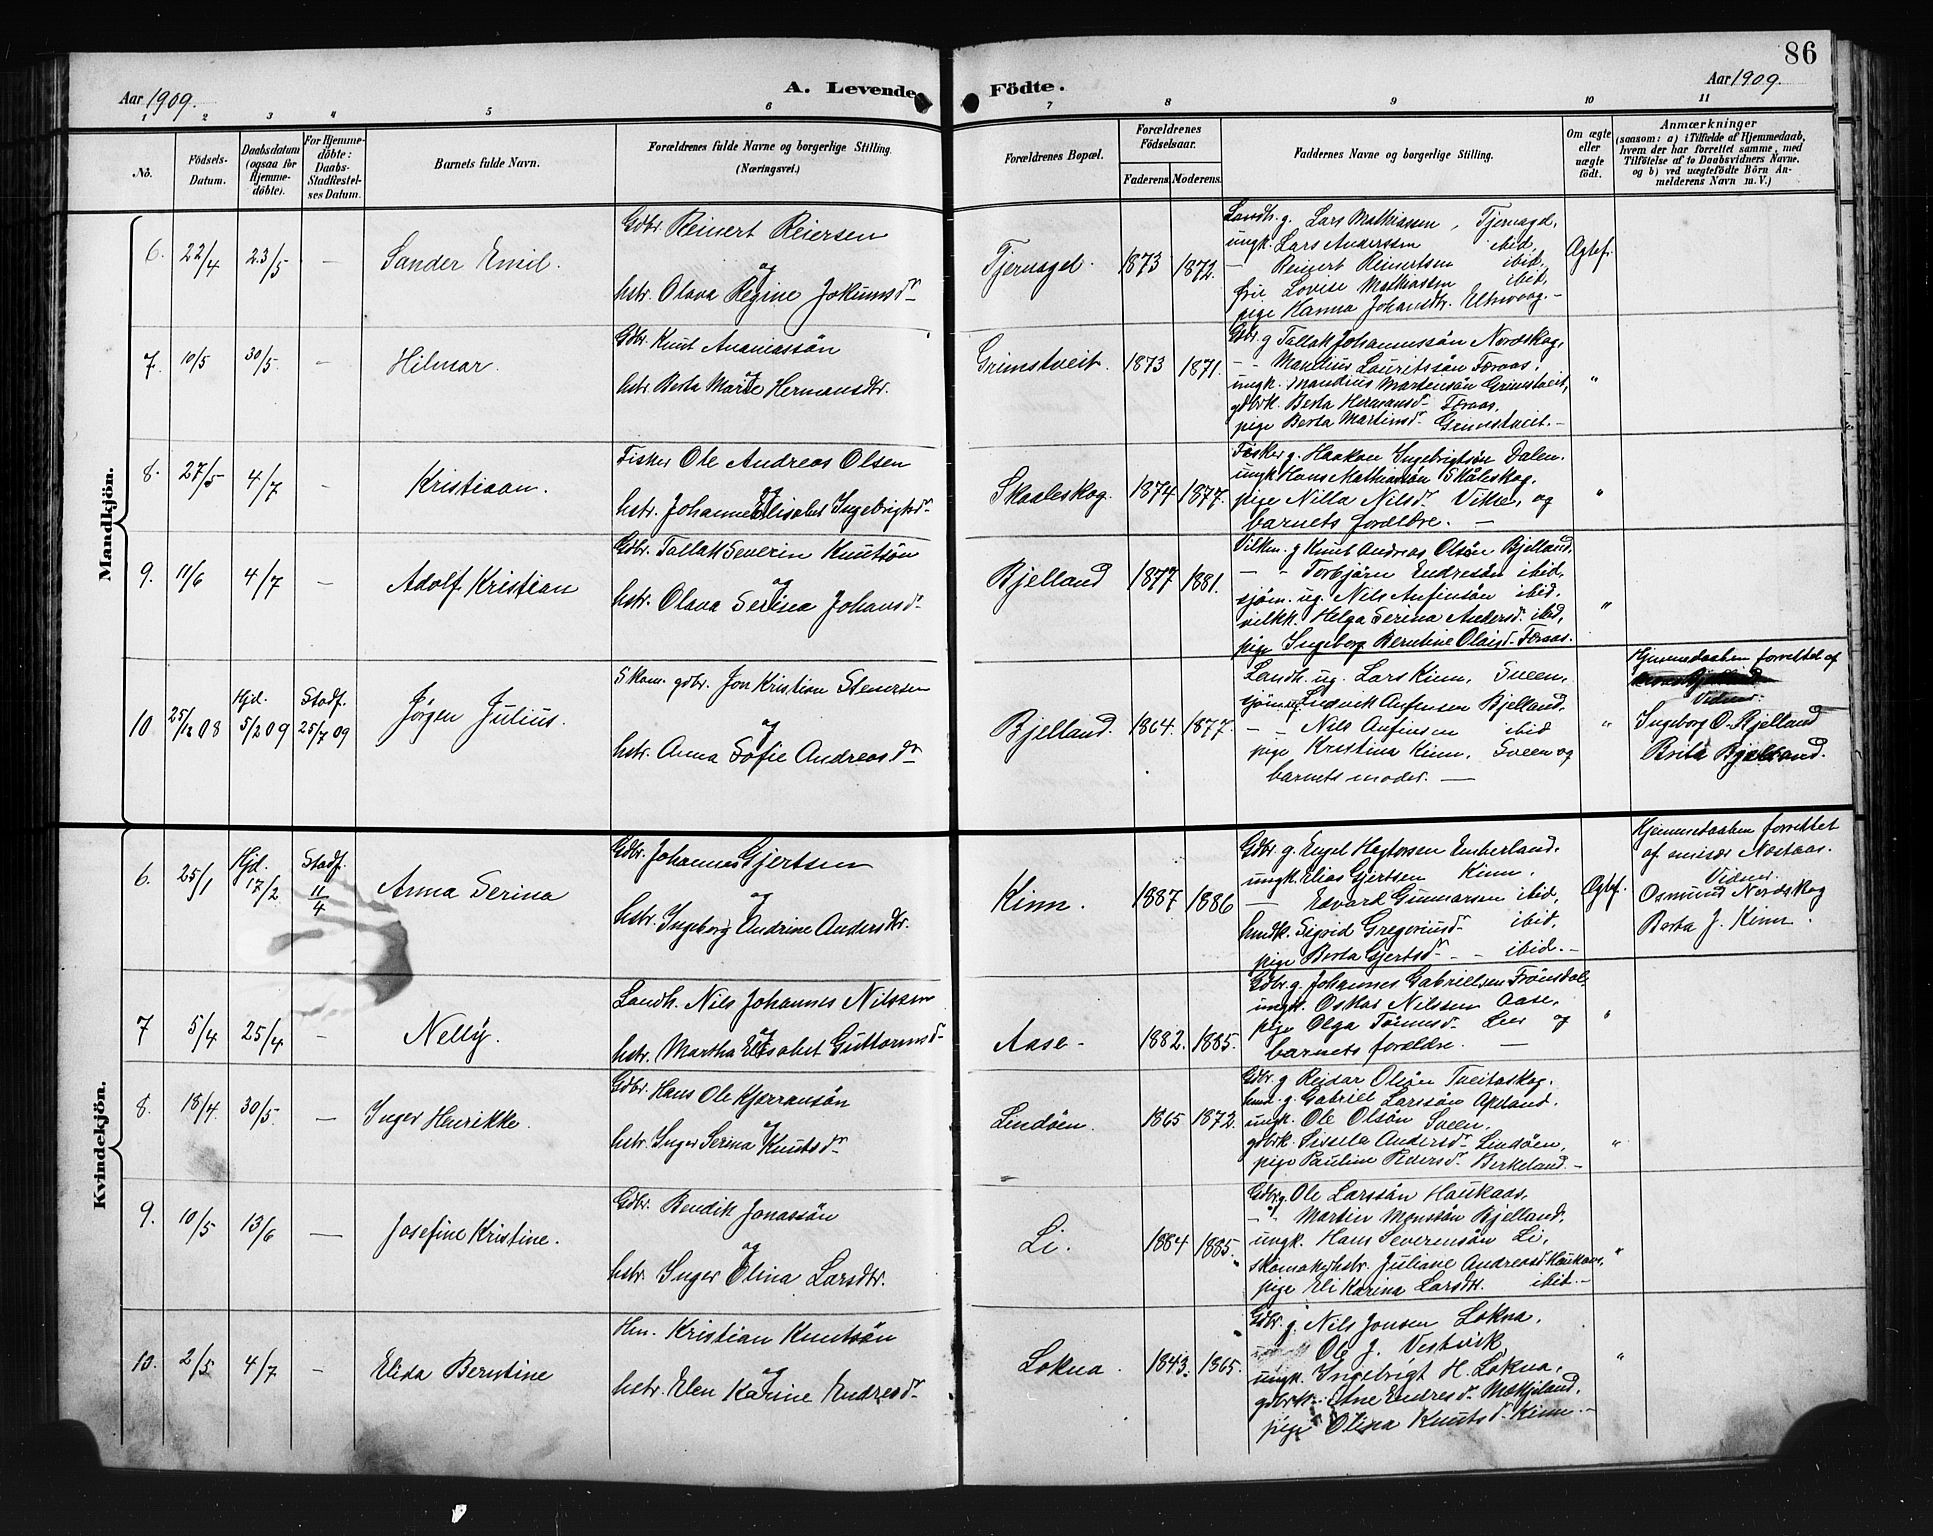 86
Aar 1909.
A. Levende
Födte.
Aar 1909.
1 2 3 4 5 6 7 8 9 10 11
No.
Födsels-Datum.
Daabsdatum (ogsaa för Hjemme-döbte).
For Hjemme-döbte: Daabs-Stadfæstel-ses Datum.
Barnets fulde Navn.
Forældrenes fulde Navne og borgerlige Stilling.
(Næringsvei.)
Forældrenes Bopæl.
Forældrenes Födselsaar.
Faderens
Moderens.
Faddernes Navne og borgerlige Stilling.
Om ægte eller uægte födt.
Anmærkninger
(saasom: a) i Tilfælde af Hjemmedaab, hvem der har forrettet samme, med Tilföielse af to Daabsvidners Navne. og b) ved uægtefödte Börn An-melderens Navn m. V.)
Mandkjön.
6. 22/4 23/5 — Sander Emil.
Gdbr Reinert Reiersen
og
hstr. Olava Regine Jokumsdr
Tjernagel. 1873 1872.
Landh. g. Lars Mathiassen, Tjernagel,
ungk. Lars Anderssen ibid,
— Reinert Reinertsen ibid,
frie Lovise Mathiassen ibid,
pige Hanna Johansdtr.
Ægtef.
7. 10/5 30/5 — Hilmar.
Gdbr Knut Ananiassön
og
hstr Berta Marte Hermansdtr.
Grimstveit. 1873 1871.
Gdbr. g Tallak Johannessön Nordskog,
— Manilius Lauritssön Föraas,
ungk. Mandius Martensön Grimstveit,
gdbrk. Berta Hermansdr Föraas,
pige Berta Martinsdr Grimstveit. —
"
8. 27/5 4/7 — Kristiaan.
Fisker Ole Andreas Olsen
og
hstr. Johanne Elisabet Ingebrigtsdr
Skaaleskog. 1874 1877.
Fisker g. Haakon Ingebrigtsön Dalen.
ungk Hans Mathiassön Skåleskog,
pige Nilla Nilsdr Vikse, og
barnets forældre. —
"
9. 11/6 4/7 — Adolf Kristian
Gdbr. Tallak Severin Knutsön
og
hstr. Olava Serina Johansdr
Bjelland 1877 1881.
g Knut Andreas Olsön Bjelland.
— — Torbjörn Endresön ibid,
sjöm. ug. Nils Anfinsön ibid.
Helga Serina Andersdr ibid,
pige Ingeborg Berntine Olaisdr Föraas.
"
10 25/12 08 Hjd. 5/2 09 Stadf. 25/7 09 Jørgen Julius.
Skom. gdbr. Jon Kristian Stenersen
og
hstr. Anna Sofie Andreasdr
Bjelland. 1864. 1877.
Landh. ug. Lars Kinn, Sveen,
sjöm. Ludvik Anfinsen Bjelland,
— Nils Anfinsen ibid
pige Kristina Kinn, Sveen og
barnets moder. —
"
Hjemmedaaben forrettet af
Vidner
Ingeborg O. Bjelland
Brita Bjelland.
Kvindekjön.
6. 25/1 Hjd. 17/2 Stadf. 11/4 Anna Serina
Gdbr. Johannes Gjertsen
og
hstr. Ingeborg Andrine Andersdtr.
Kinn. 1887 1886
Gdbr. g. Engel Hagtorsen Emberland.
ungk. Elias Gjertsen Kinn,
— Edvard Gunnarsen ibid,
husdk. Sigrid Gregoriusdr ibid,
pige Berta Gjertsdr — ibid. —
Ægtef.
Hjemmedaaben forrettet
af emisær Nøstaas.
Vidner
Osmund Nordskog
Berta J. Kinn.
7 5/4 25/4 — Nelly.
Landh. Nils Johannes Nilssen
og
hstr. Martha Elisabet Guttormsdr
Aase — 1882. 1885.
Gdbr. g. Johannes Gabrielsen Frönsdal
ungk. Oskar Nilssen Aase,
pige Olga Tönnesdr Lier og
barnets forældre. —
"
8. 18/4. 30/5. — Inger Henrikke.
Gdbr. Hans Ole Kjerransön
og
hstr. Inger Serina Knutsdr
Lindöen. 1865 1872.
Gdbr. g Reidar Olsön Tveitaskog.
husd. g. Gabriel Larssön Apeland.
ungk. Ole Olsön Sveen,
gdbrk. Sissela Andersdr Lindöen,
pige Pauline Pedersdr Berkeland —
"
9. 10/5 13/6 — Josefine Kristine.
Gdbr. Bendik Jonassön
og
hstr. Inger Elina Larsdtr.
Li. 1884 1885.
Gdbr g. Ole Larssön Haukaas,
— " Martin Monssön Bjelland,
ungk. Hans Severensön Li,
Skomakerhstr. Juliane Andreasd Haukaas,
pige Eli Karina Larsdtr. ibid —
"
10. 2/5 4/7 — Elida Berntine
Hm. Kristian Knutsön
og
hstr. Elen Karine Endresdr
Lokna. 1843. 1865.
Gdbr. g. Nils Jonsen Lokna,
Ole J. Vestvik
ungk. Ingebrigt H. Lokna,
gdbrk. Ane Endresdr Mækjeland,
pige Olina Knutsdr Kinn —
"